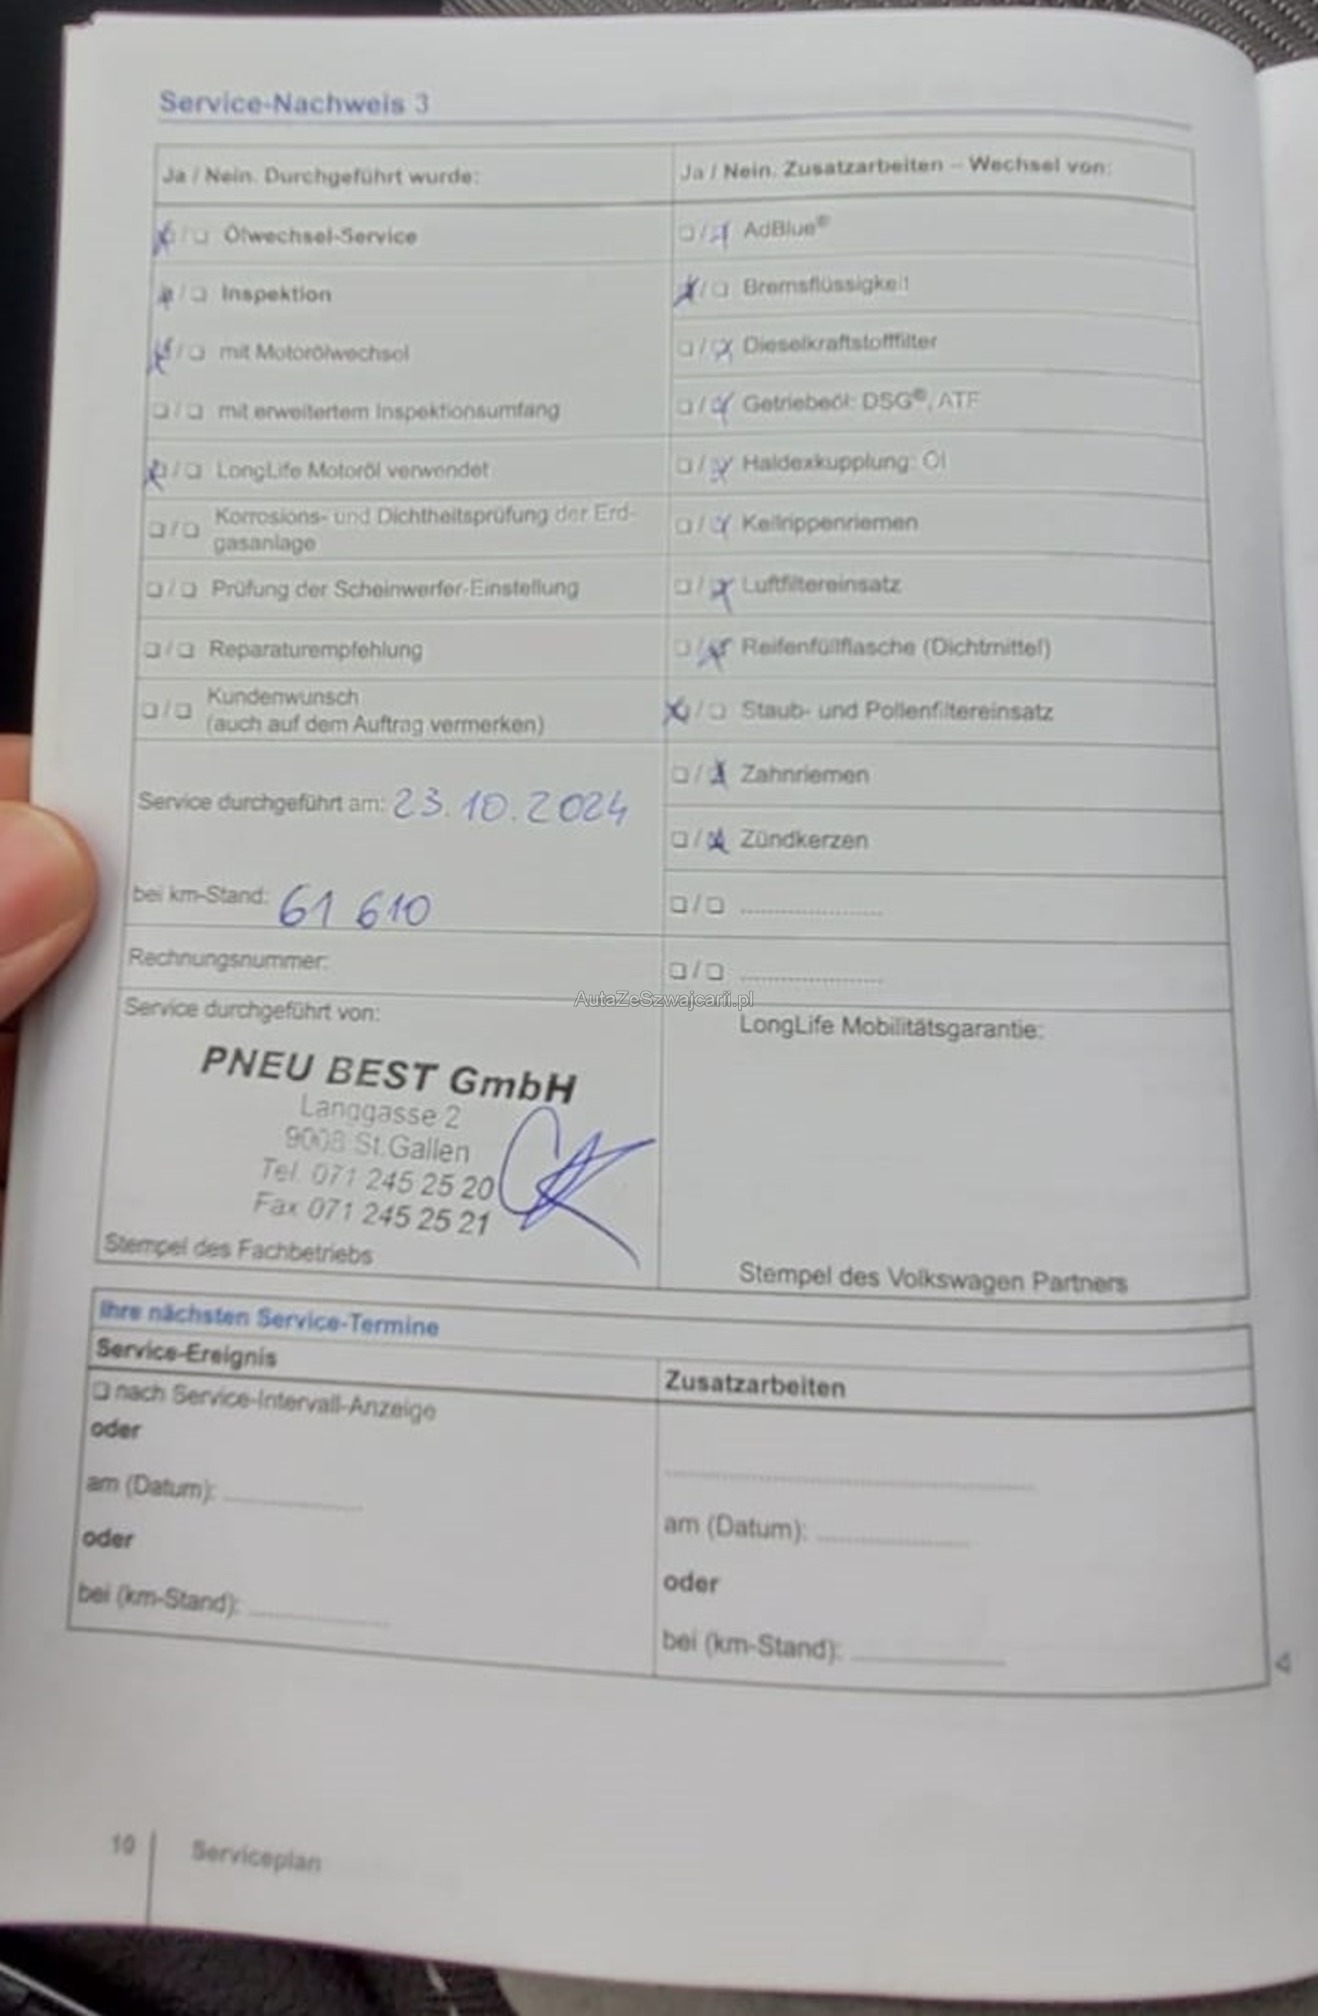 Service-Nachweis 3
Ja / Nein. Durchgeführt wurde:
☒ / ☐ Ölwechsel-Service
☒ / ☐ Inspektion
☒ / ☐ mit Motorölwechsel
☐ / ☐ mit erweitertem Inspektionsumfang
☒ / ☐ LongLife Motoröl verwendet
☐ / ☐ Korrosions- und Dichtheitsprüfung der Erd-
gasanlage
☐ / ☐ Prüfung der Scheinwerfer-Einstellung
☐ / ☐ Reparaturempfehlung
☐ / ☐ Kundenwunsch
(auch auf dem Auftrag vermerken)
Service durchgeführt am: 23.10.2024
bei km-Stand: 61 610
Rechnungsnummer:
Service durchgeführt von:
PNEU BEST GmbH
Langgasse 2
9008 St.Gallen
Tel. 071 245 25 20
Fax 071 245 25 21
Stempel des Fachbetriebs
Ja / Nein. Zusatzarbeiten – Wechsel von:
☐ / ☒ AdBlue®
☒ / ☐ Bremsflüssigkeit
☐ / ☒ Dieselkraftstofffilter
☐ / ☒ Getriebeöl: DSG®, ATF
☐ / ☒ Haldexkupplung: Öl
☐ / ☒ Keilrippenriemen
☐ / ☒ Luftfiltereinsatz
☐ / ☒ Reifenfüllflasche (Dichtmittel)
☒ / ☐ Staub- und Pollenfiltereinsatz
☐ / ☒ Zahnriemen
☐ / ☒ Zündkerzen
☐ / ☐ ....................
☐ / ☐ ....................
AutaZeSzwajcarii.pl
LongLife Mobilitätsgarantie:
Stempel des Volkswagen Partners
Ihre nächsten Service-Termine
Service-Ereignis
☐ nach Service-Intervall-Anzeige
oder
am (Datum):
oder
bei (km-Stand):
Zusatzarbeiten
am (Datum):
oder
bei (km-Stand):
10
Serviceplan